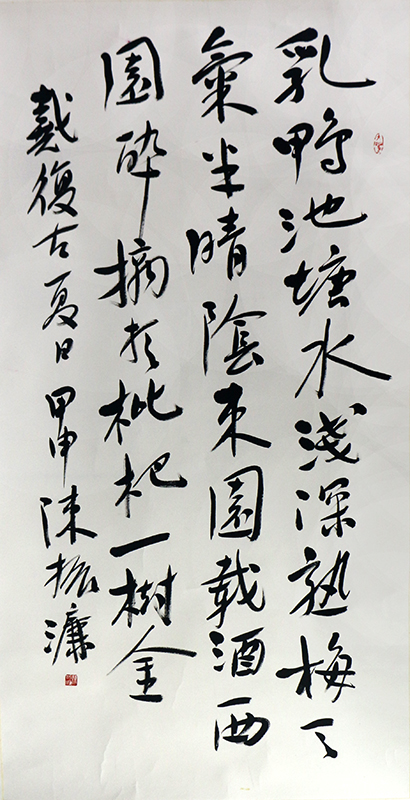 乳鴨池塘水淺深熟梅天
氣半晴陰東園載酒西
園醉摘尽枇杷一樹金
戴復古夏日 甲申 陳振濂